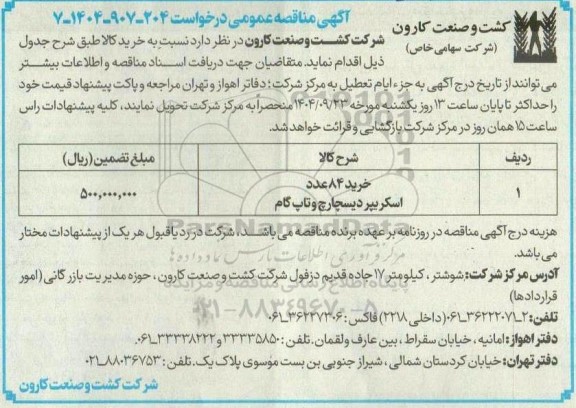 آگهی مناقصه عمومی درخواست ۲۰۴-۹۰۷-۱۴۰۴-۷
کشت و صنعت کارون
(شرکت سهامی خاص)
شرکت کشت و صنعت کارون در نظر دارد نسبت به خرید کالا طبق شرح جدول
ذیل اقدام نماید. متقاضیان جهت دریافت اسناد مناقصه و اطلاعات بیشتر
می توانند از تاریخ درج آگهی به جزء ایام تعطیل به مرکز شرکت؛ دفاتر اهواز و تهران مراجعه و پاکت پیشنهاد قیمت خود
را حداکثر تا پایان ساعت ۱۳ روز یکشنبه مورخه ۱۴۰۴/۰۹/۲۳ منحصراً به مرکز شرکت تحویل نمایند، کلیه پیشنهادات راس
ساعت ۱۵ همان روز در مرکز شرکت بازگشایی و قرائت خواهد شد.
ردیف شرح کالا مبلغ تضمین (ریال)
۱ خرید ۸۴ عدد ۵۰۰,۰۰۰,۰۰۰
اسکریپر دیسچارج و تاپ گام
هزینه درج آگهی مناقصه در روزنامه بر عهده برنده مناقصه می باشد، شرکت در رد یا قبول هر یک از پیشنهادات مختار
می باشد.
آدرس مرکز شرکت: شوشتر، کیلومتر ۱۷ جاده قدیم دزفول شرکت کشت و صنعت کارون، حوزه مدیریت بازرگانی (امور
قراردادها)
تلفن: ۲-۳۶۲۲۲۰۷۱-۰۶۱ (داخلی ۲۲۱۸) فاکس: ۳۶۲۲۷۳۰۶-۰۶۱
دفتر اهواز: امانیه، خیابان سقراط، بین عارف ولقمان. تلفن: ۳۳۳۳۵۸۵۰ و ۳۳۳۳۸۲۲۲-۰۶۱.
دفتر تهران: خیابان کردستان شمالی، شیراز جنوبی بن بست موسوی پلاک یک. تلفن: ۸۸۰۳۶۷۵۳-۰۲۱
شرکت کشت و صنعت کارون
ParsNamadData
۰۲۱-۸۸۳۴۹۶۷۰-۵